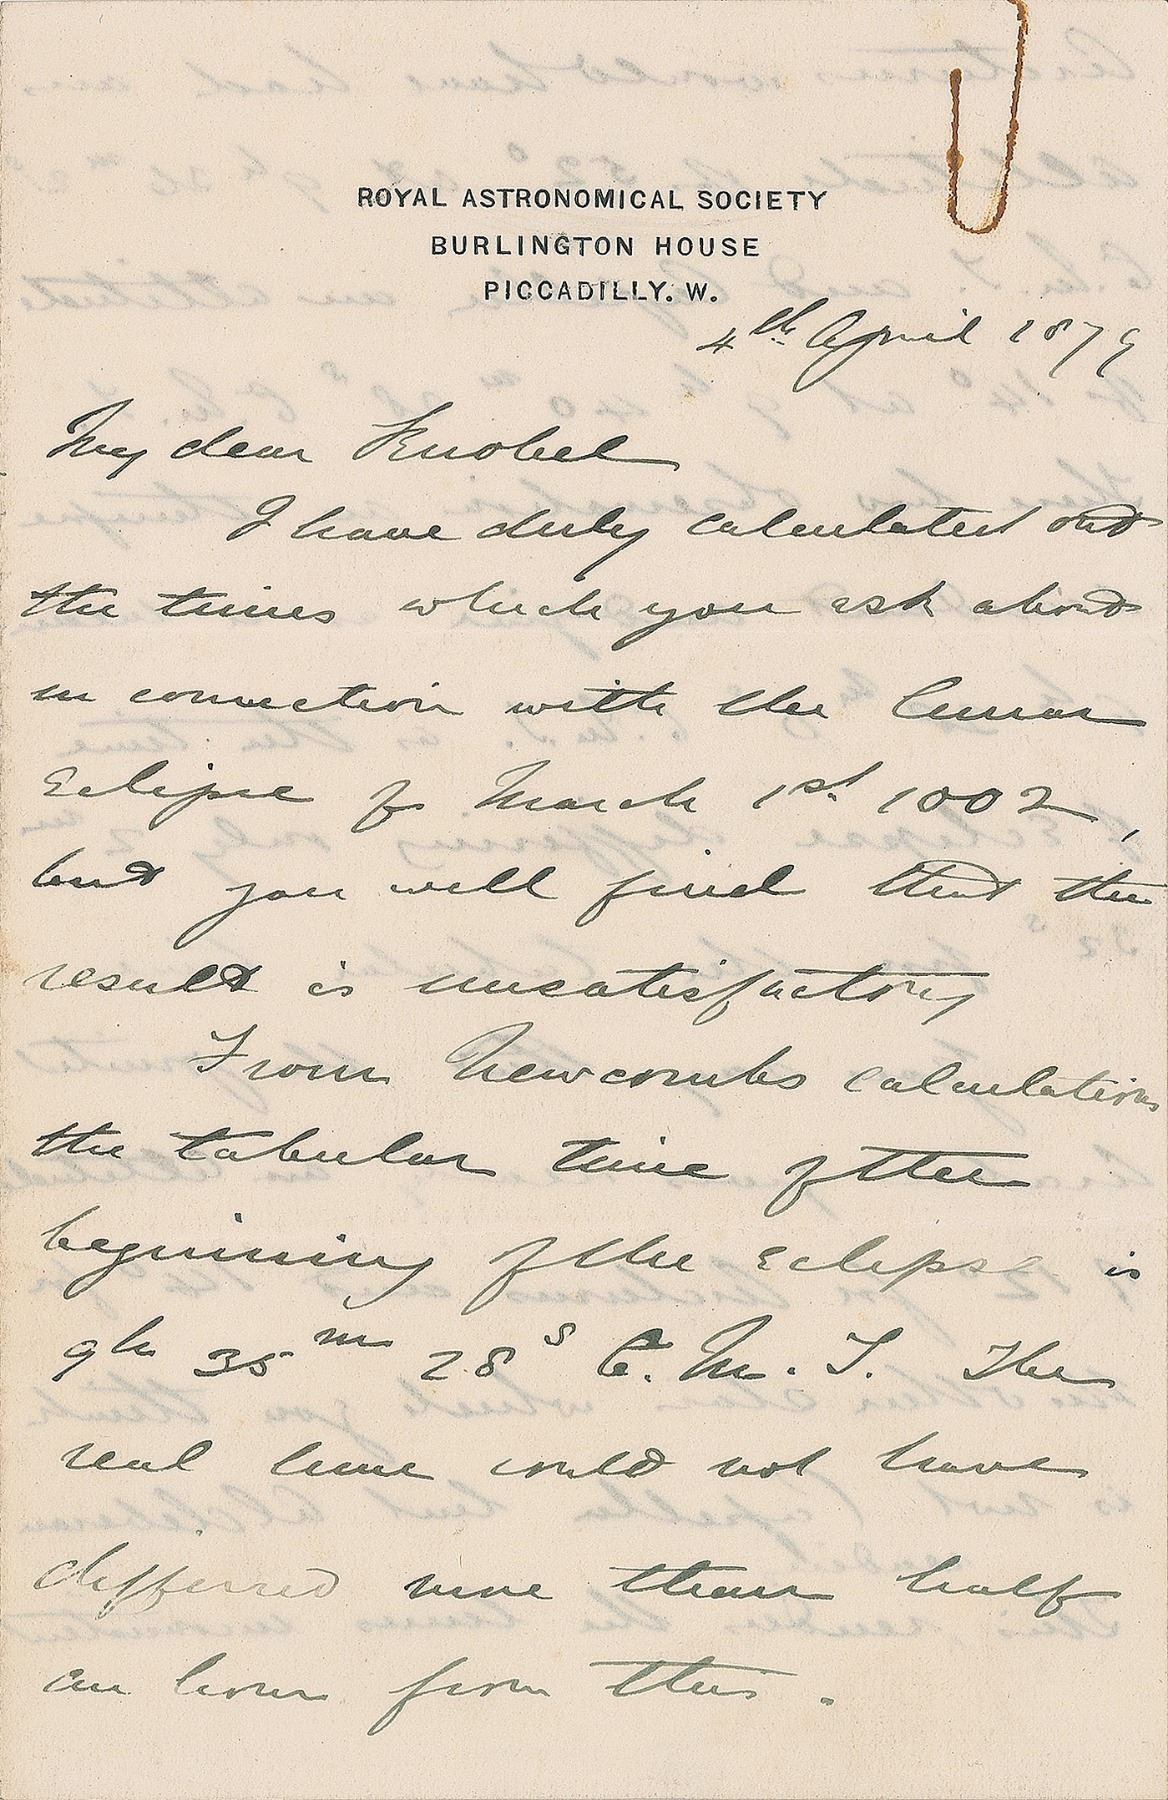 ROYAL ASTRONOMICAL SOCIETY
BURLINGTON HOUSE
PICCADILLY. W.
4th April 1879
My dear Knobel
I have duly calculated out
the times which you ask about
in connection with the Lunar
Eclipse of March 1st 1002,
but you will find that the
result is unsatisfactory
From Newcombs calculations
the tabular time of the
beginning of the Eclipse is
9h 35m 28s C. M. T. The
real time could not have
differred more than half
an hour from this.